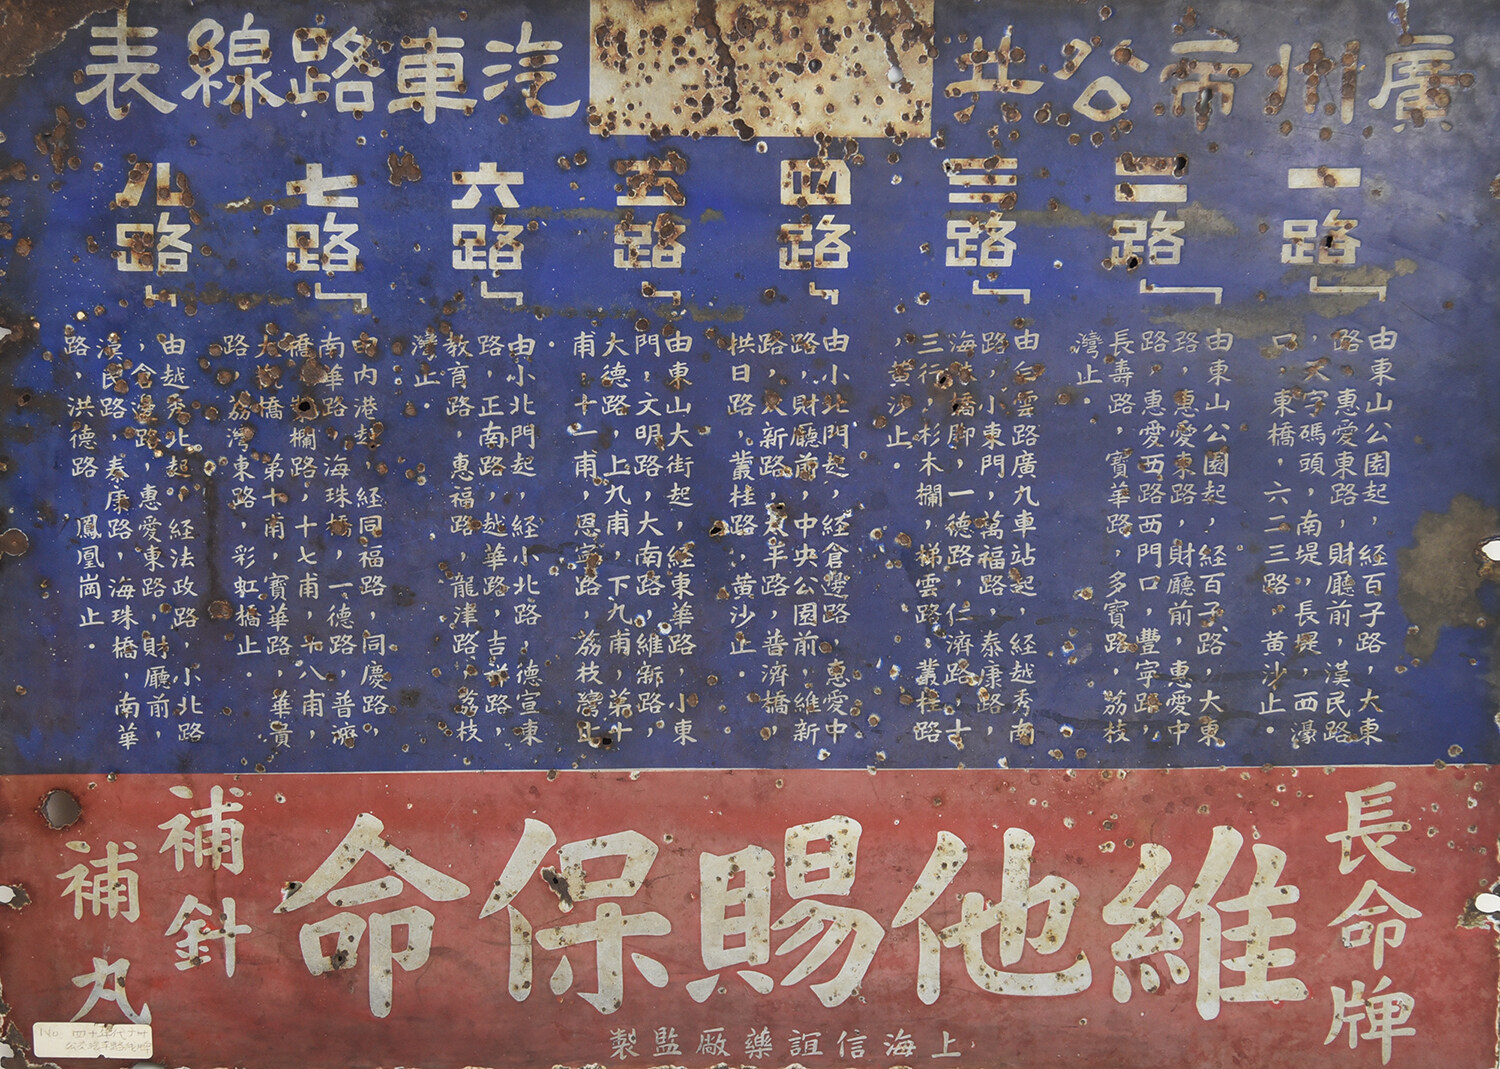 廣州市公共汽車路線表
一路
由東山公園起，經百子路，大東
路，惠愛東路，財廳前，漢民路
，天字碼頭，南堤，長堤，西濠
口，東橋，六二三路，黃沙止．
二路
由東山公園起，經百子路，大東
路，惠愛東路，財廳前，惠愛中
路，惠愛西路西門口，豐寧路，
長壽路，寶華路，多寶路，荔枝
灣止．
三路
由白雲路廣九車站起，經越秀南
路，小東門，萬福路，泰康路，
海珠橋脚，一德路，仁濟路，十
三行，杉木欄，梯雲路，叢桂路
，黃沙止．
四路
由小北門起，經倉邊路，惠愛中
路，財廳前，中央公園前，維新
路，大新路，太平路，普濟橋，
拱日路，叢桂路，黃沙止．
五路
由東山大街起，經東華路，小東
門，文明路，大南路，維新路，
大德路，上九甫，下九甫，第十
甫，十一甫，恩寧路，荔枝灣止
．
六路
由小北門起，經小北路，德宣東
路，正南路，越華路，吉祥路，
教育路，惠福路，龍津路，荔枝
灣止．
七路
由內港起，經同福路，同慶路，
南華路，海珠橋，一德路，普濟
橋，欄路，十七甫，十八甫，
大橋，第十甫，寶華路，華貴
路，荔灣東路，彩虹橋止．
八路
由越秀北起，經法政路，小北路
，倉邊路，惠愛東路，財廳前，
漢民路，泰康路，海珠橋，南華
路，洪德路，鳳凰崗止．
長命牌
維他賜保命
補針
補丸
上海信誼藥廠監製
No. 四十年代廣州